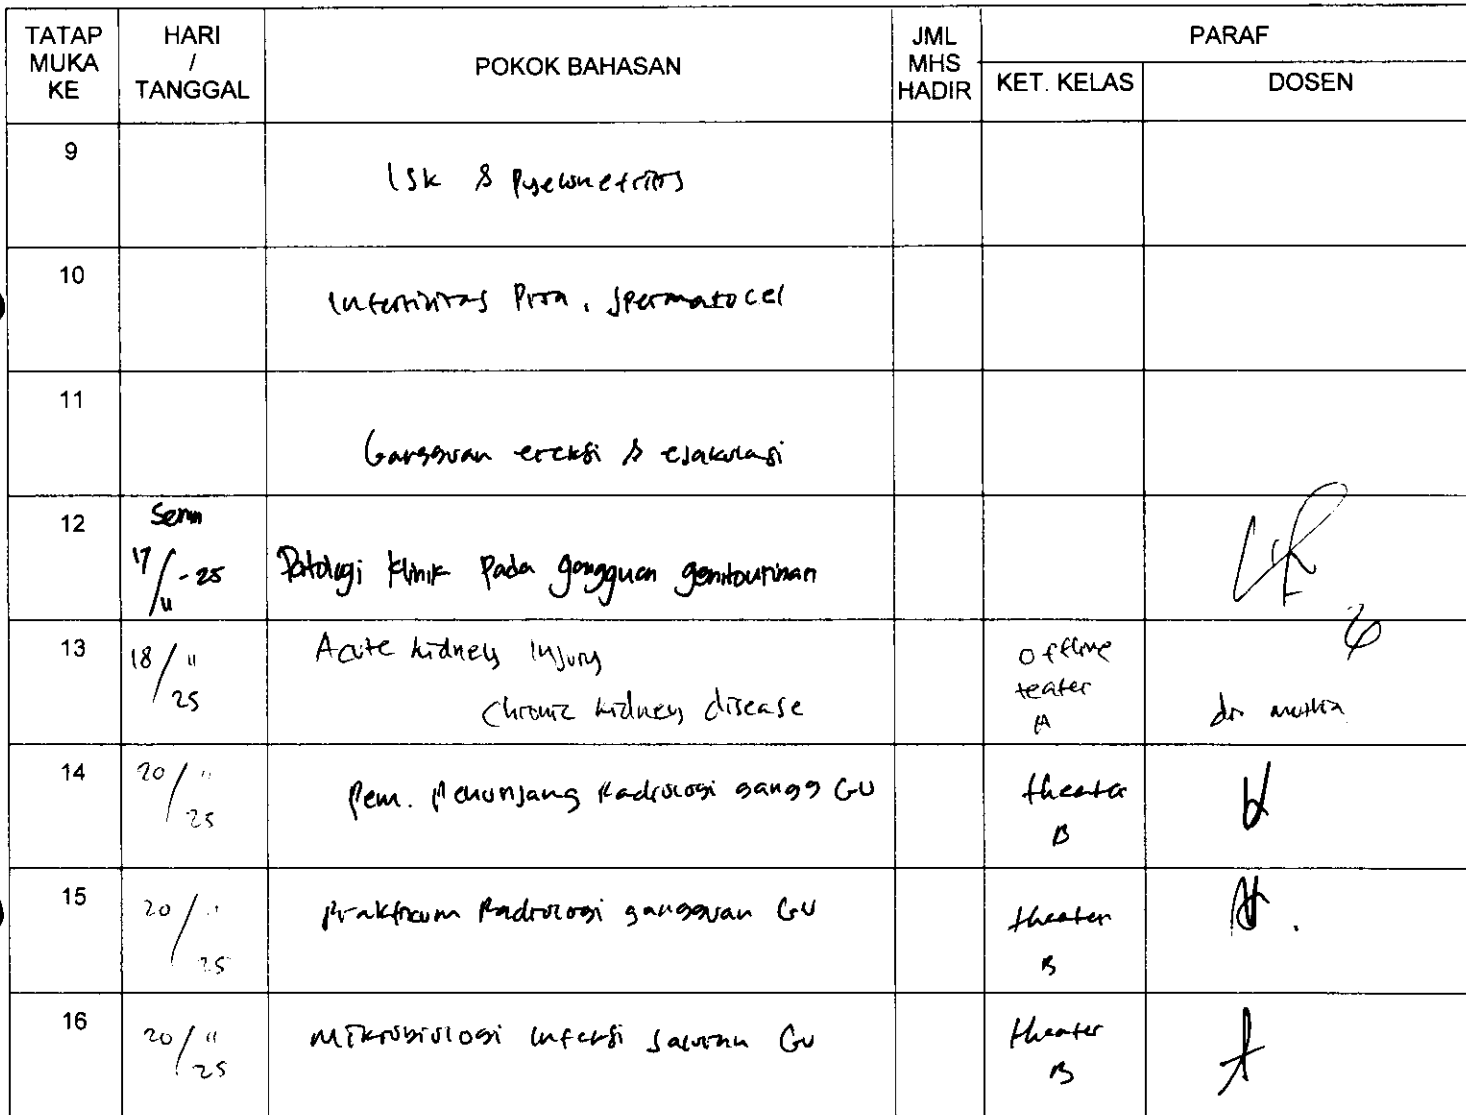 TATAP MUKA KE
HARI / TANGGAL
POKOK BAHASAN
JML MHS HADIR
PARAF
KET. KELAS
DOSEN
9
ISK & Pyelonefritis
10
Infertilitas Pria, Spermatocel
11
Gangguan ereksi & ejakulasi
12
Senin
17/11-25
Patologi klinik pada gangguan genitourinari
13
18/11 25
Acute kidney injury
Chronic kidney disease
offline
teater
A
dr
14
20/11 25
Pem. Penunjang Radiologi gangg GU
theater
B
15
20/11 25
Praktikum Radiologi gangguan GU
theater
B
16
20/11 25
Mikrobiologi infeksi saluran GU
theater
B